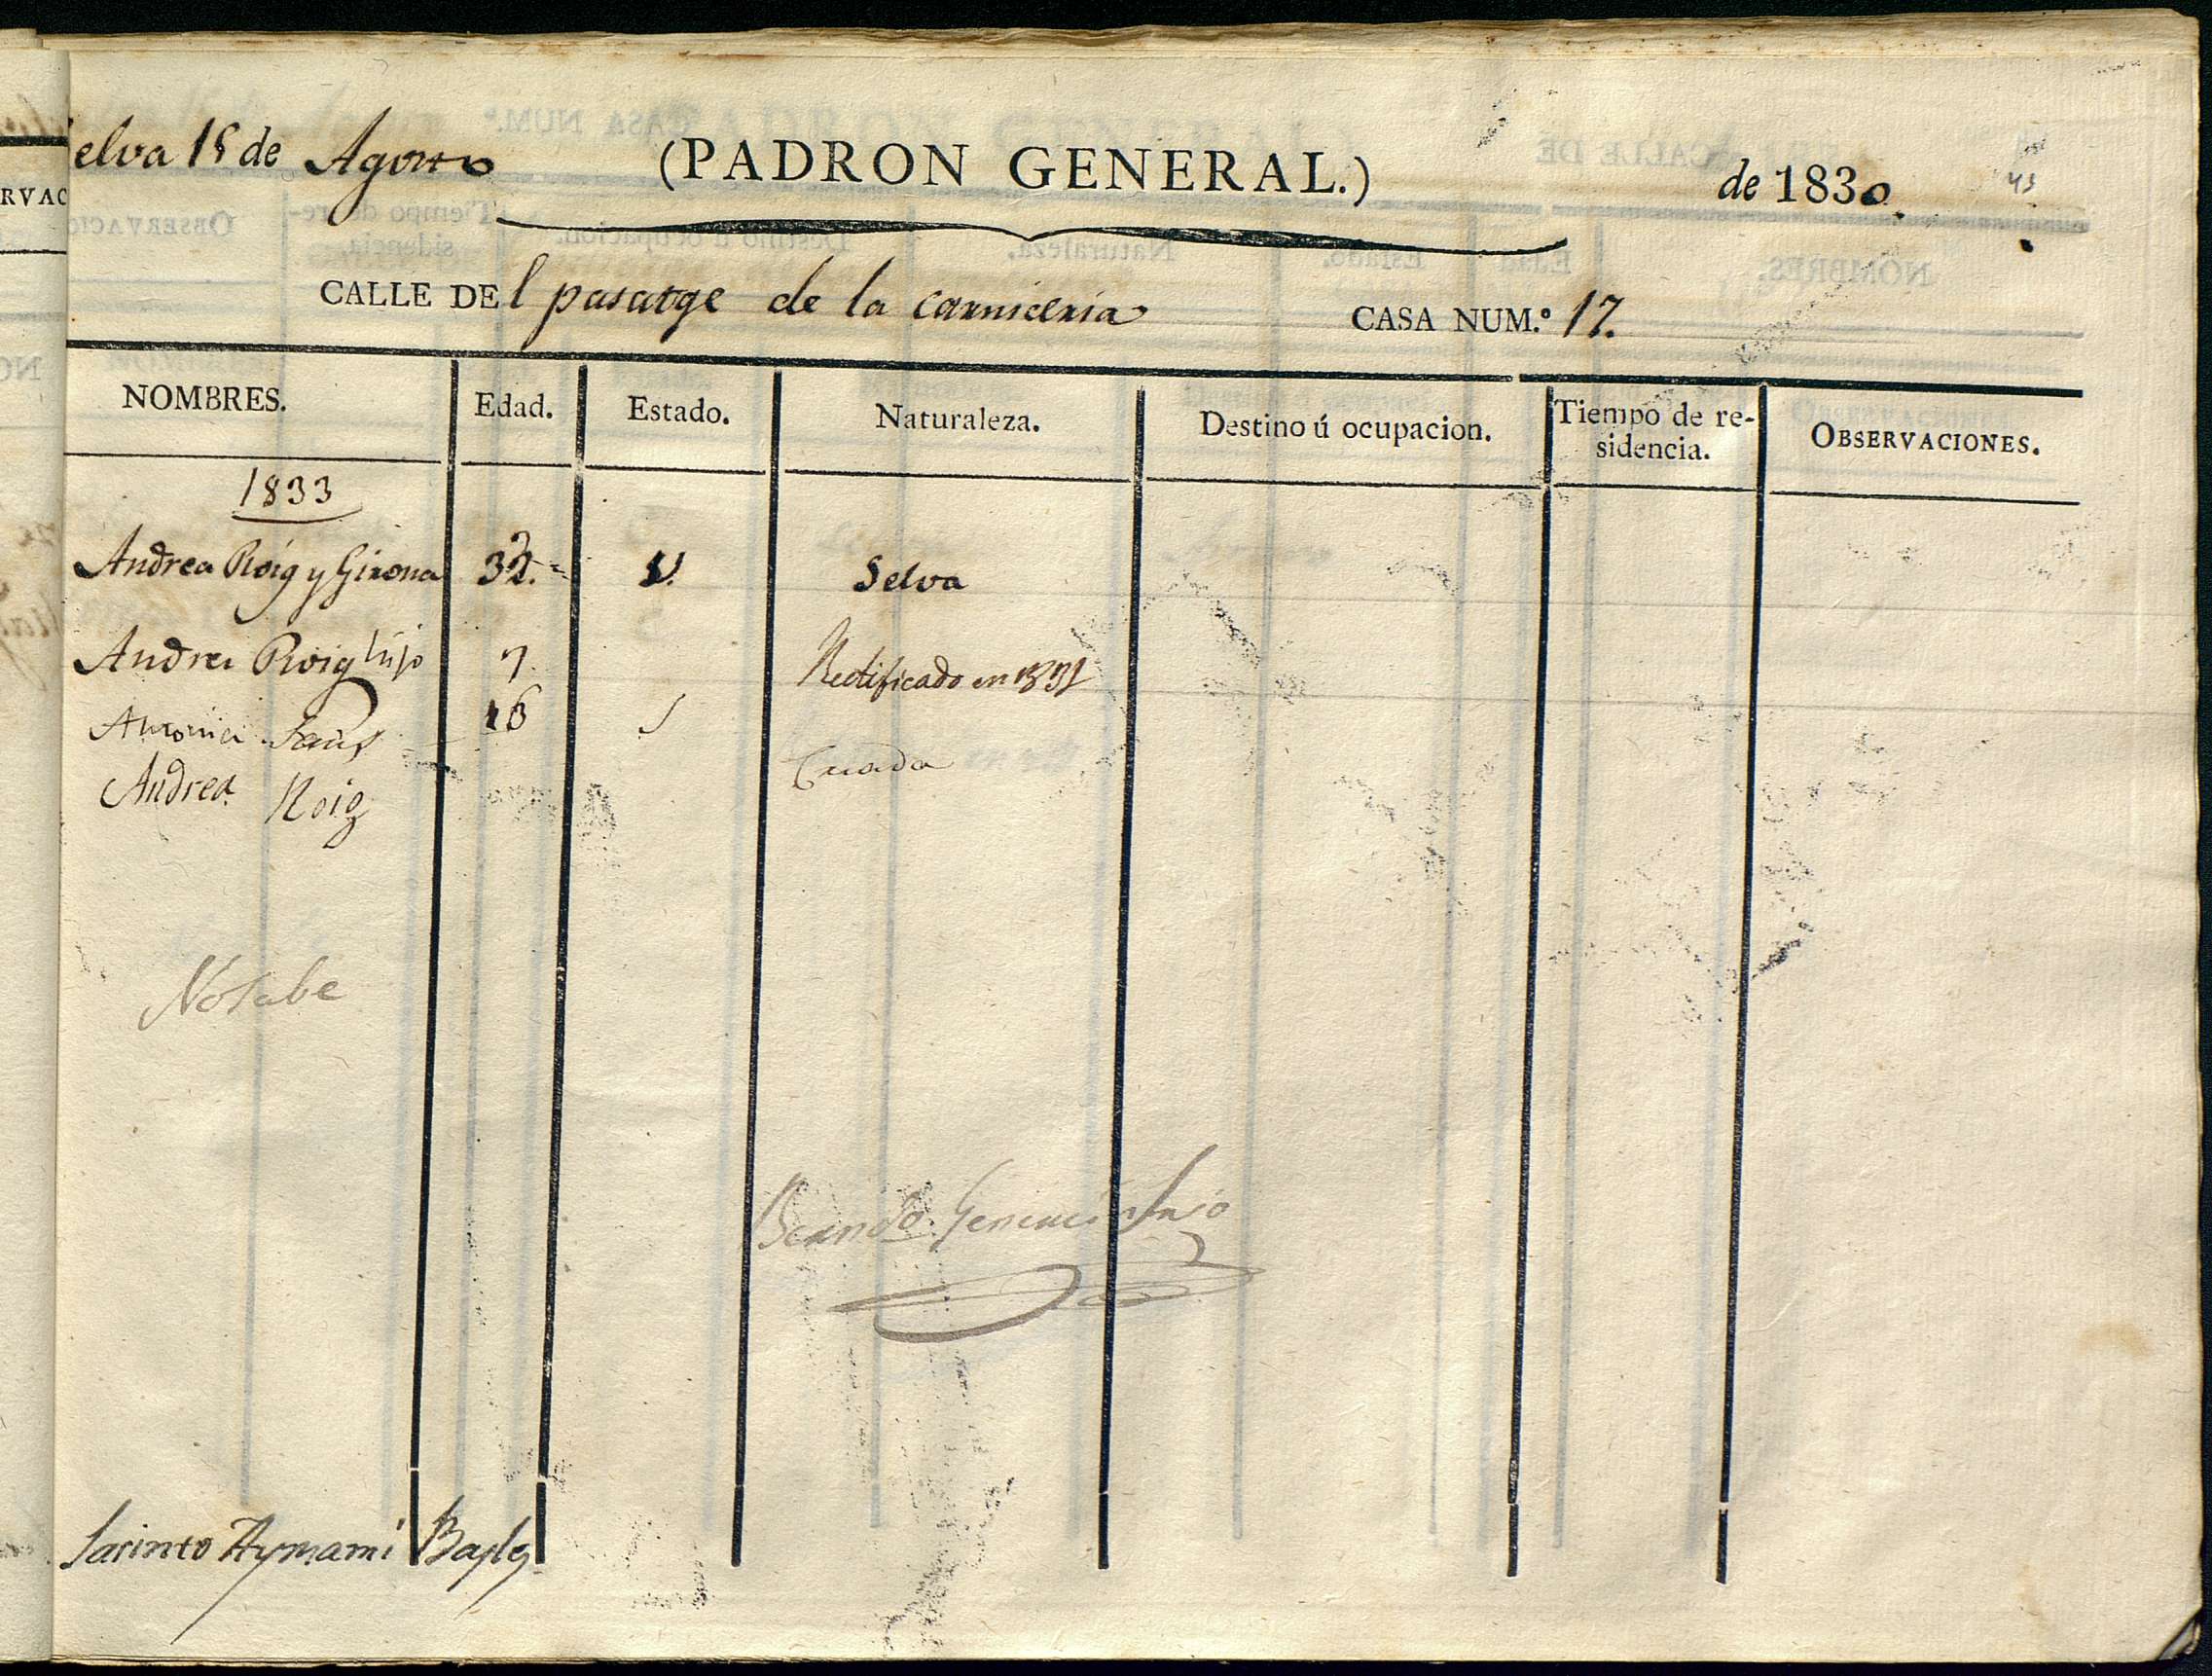 elva 15 de Agosto (PADRON GENERAL.) de 1830.
43
RVAC
CALLE DEl pasatge de la carniceria CASA NUM.º 17.
NOMBRES. Edad. Estado. Naturaleza. Destino ú ocupacion. Tiempo de re-sidencia. OBSERVACIONES.
1833
Andrea Roig y Girona 32. V. Selva
Andreu Roig hijo 7. Rectificado en 1831
Antonia Sans 16 S Criada
Andrea Roig
No sabe
Jacinto Aymamí Bayle